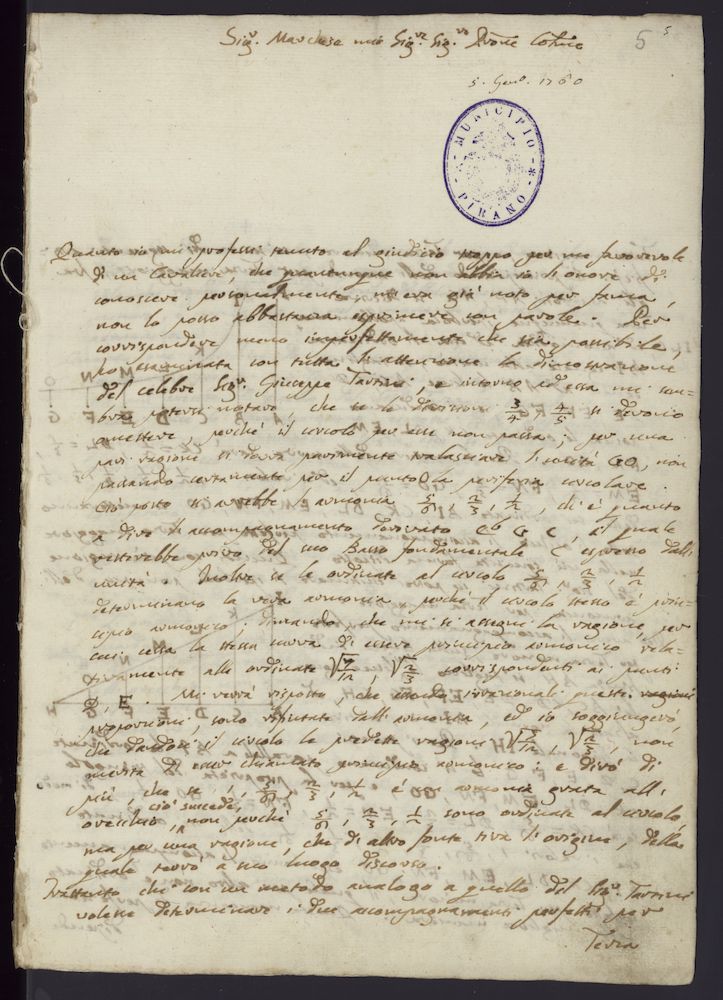 Sig.r Marchese mio Sig.re Sig.re Prone Colmo
5
5
5. Gen.o 1760
MUNICIPIO
PIRANO
Quanto io mi professi tenuto al giudicio troppo per me favorevole
di un Cavaliere, che quantunque non abbia io l'onore di
conoscere personalmente, m'era già noto per fama,
non lo posso abbastanza esprimere con parole. Per
corrispondere meno imperfettamente che sia possibile,
ho esaminata con tutta l'attenzione la dimostrazione
del celebre Sig.r Giuseppe Tartini, e intorno ad essa mi sem=
bra potersi notare, che se le divisioni 3/4, 4/5 si devono
omettere, perché il circolo per esse non passa; per una
pari ragione si dovrà parimente tralasciare l'unità, non
passando certamente per il punto la periferia circolare.
Ciò posto si avrebbe l'armonia 5/6, 2/3, 1/2, ch'è quanto
a dire l'accompagnamento derivato G C, il quale
resterebbe privo del suo Basso fondamentale C espresso dall'
unità. Inoltre se le ordinate al circolo 5/6, 2/3, 1/2
determinano la vera armonia, perché il circolo stesso è prin=
cipio armonico; dimando, che mi si assegni la ragione, per
cui cessa la stessa nuova di essere principio armonico rela=
tivamente alle ordinate corrispondenti ai punti
D, E. Mi verrà risposto, che essendo irrazionali queste ragioni
proporzioni, sono rifiutate dall'armonia, ed io soggiungerò,
che dandosi il circolo le predette ragioni, non
merita di esser chiamato principio armonico: e dirò di
più, che se 1, 5/6, 2/3, 1/2 è un'armonia grata all'
orecchio, ciò succede, non perché 5/6, 2/3, 1/2 sono ordinate al circolo,
ma per una ragione, che di altro fonte tira l'origine, della
quale terrò a suo luogo discorso.
Trattanto chi con un metodo analogo a quello del Sig.r Tartini
volesse determinare i due accompagnamenti perfetti per
Terza